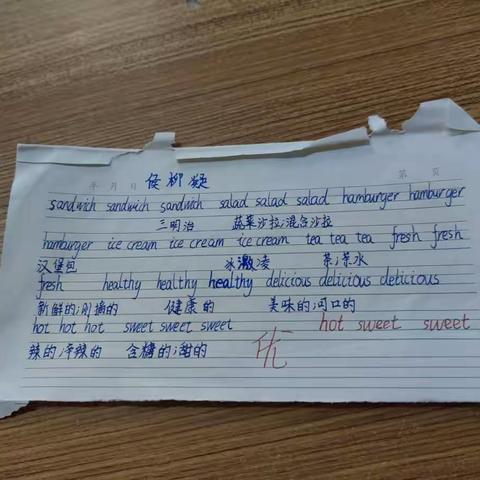 年 月 日 侯柳凝 第 页
sandwich sandwich sandwich salad salad salad hamburger hamburger
三明治 蔬菜沙拉;混合沙拉
hamburger ice cream ice cream ice cream tea tea tea fresh fresh
汉堡包 冰激凌 茶;茶水
fresh healthy healthy healthy delicious delicious delicious
新鲜的;刚摘的 健康的 美味的;可口的
hot hot hot sweet sweet sweet hot sweet sweet
辣的;辛辣的 含糖的;甜的 优